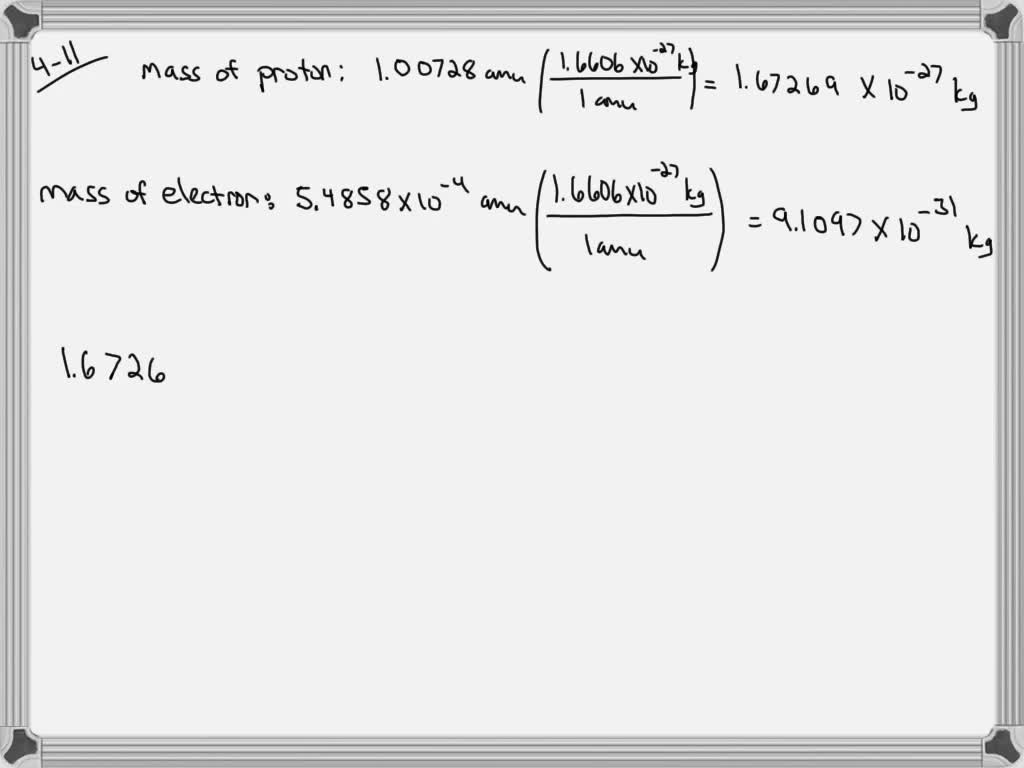 4-11
mass of proton: 1.00728 amu (1.6606 x10^-27 kg / 1 amu) = 1.67269 x 10^-27 kg
mass of electron: 5.4858 x 10^-4 amu (1.6606 x 10^-27 kg / 1 amu) = 9.1097 x 10^-31 kg
1.6726